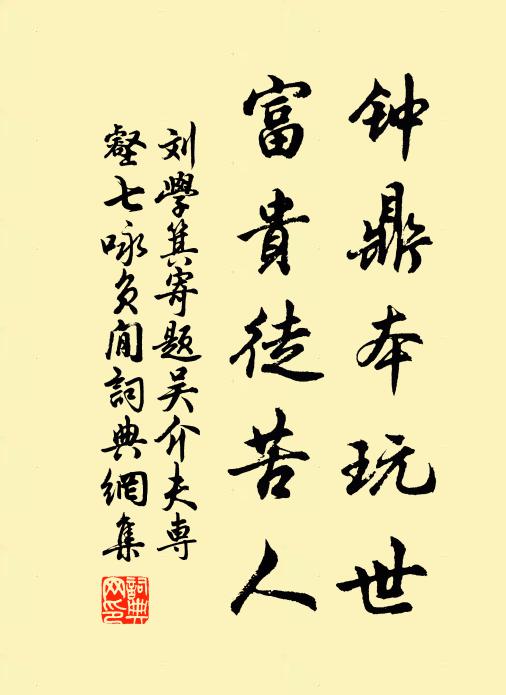 钟鼎本玩世
富貴徒苦人
刘學箕寄题吴介夫専
壑七咏负闲詞典網集
詞典网印